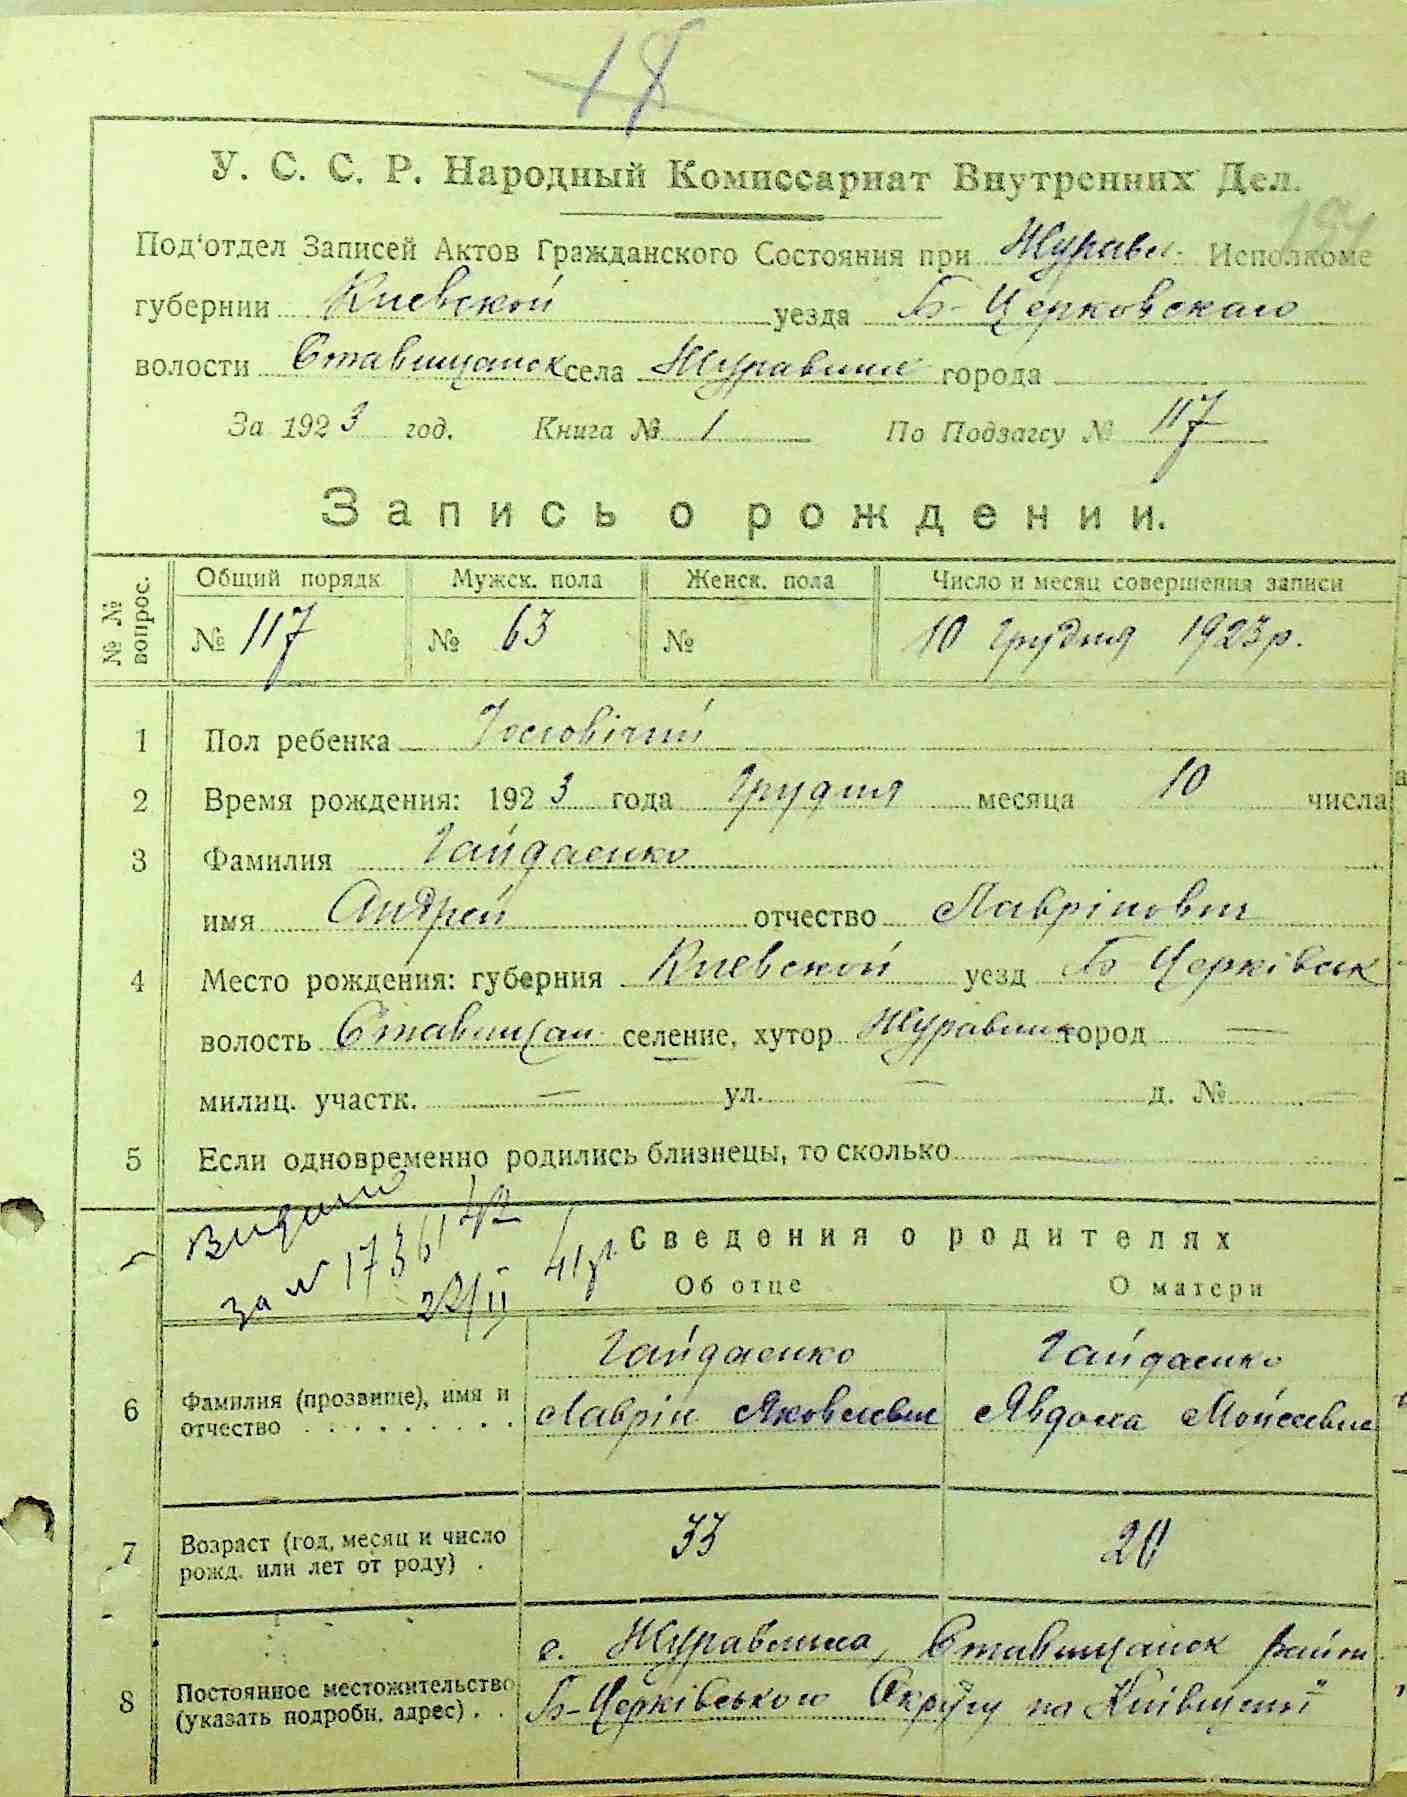 18
У. С. С. Р. Народный Комиссариат Внутренних Дел.
194
Под‘отдел Записей Актов Гражданского Состояния при Журавл. Исполкоме
губернии Киевской уезда Б-Церковскаго
волости Ставищанск села Журавлиха города
За 1923 год. Книга № 1 По Подзагсу № 117
Запись о рождении.
№ № вопрос. Общий порядк. Мужск. пола Женск. пола Число и месяц совершения записи
№ 117 № 63 № 10 Грудня 1923 р.
1 Пол ребенка Чоловічий
2 Время рождения: 1923 года Грудня месяца 10 числа
3 Фамилия Гайдаенко
имя Андрей отчество Лаврінович
4 Место рождения: губерния Киевской уезд Б-Церківськ
волость Ставищан. селение, хутор Журавлиха город —
милиц. участк. — ул. — д. № —
5 Если одновременно родились близнецы, то сколько —
Видано
за № 17361
22/II 41 р.
Сведения о родителях
Об отце О матери
Гайдаенко Гайдаенко
6 Фамилия (прозвище), имя и отчество . . . . . . . Лаврін Яковлевич Явдоха Мойсеевна
7 Возраст (год, месяц и число рожд. или лет от роду) . 33 20
8 Постоянное местожительство (указать подробн. адрес) . . с. Журавлиха, Ставищанск район
Б-Церківського Округу на Київщині